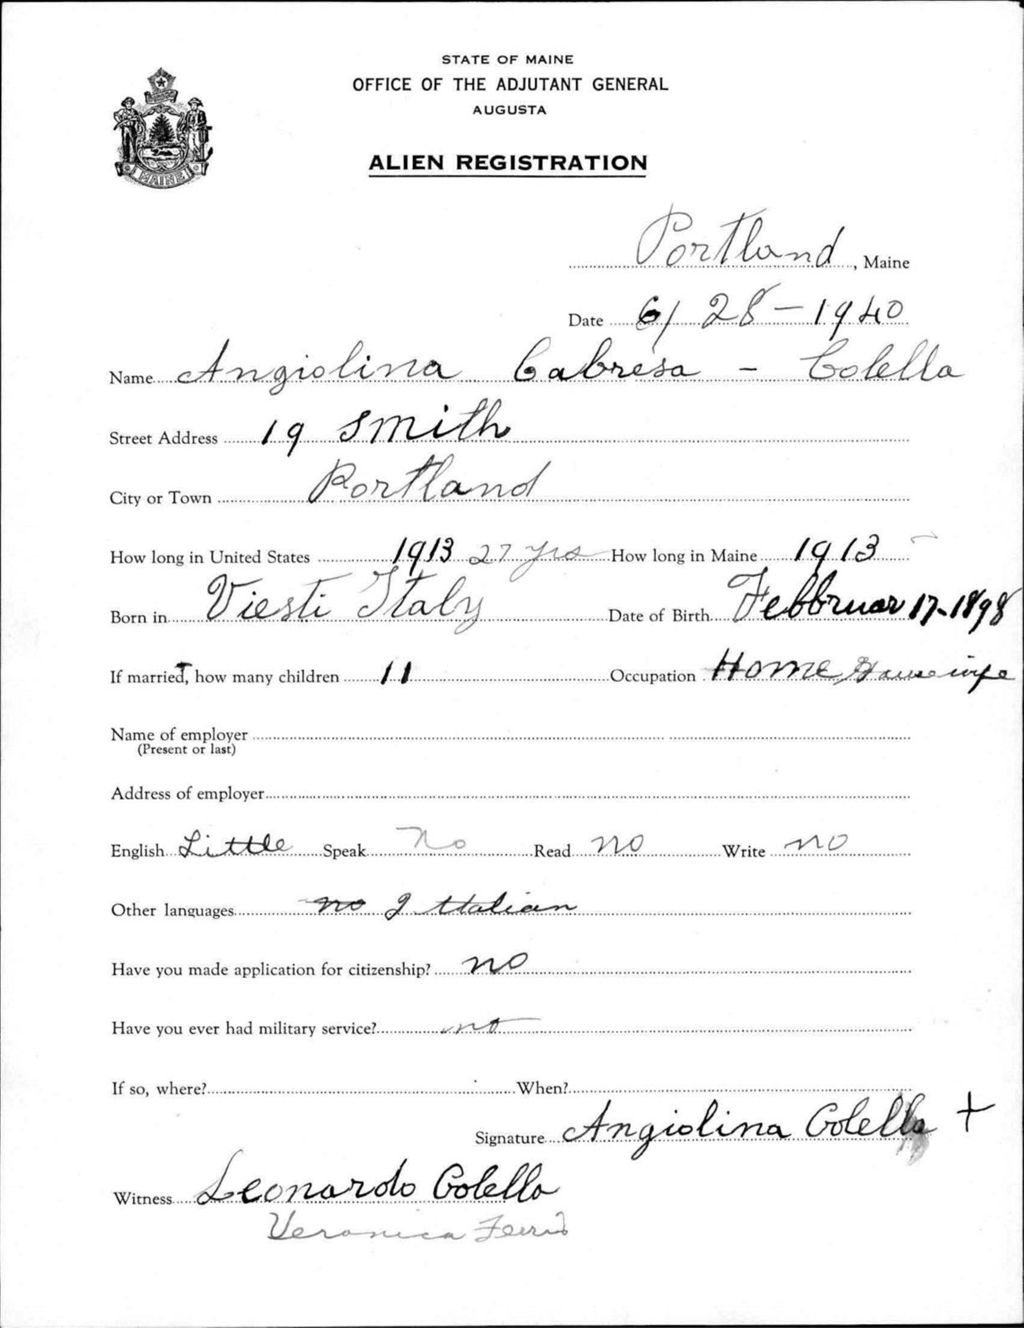 STATE OF MAINE
OFFICE OF THE ADJUTANT GENERAL
AUGUSTA
ALIEN REGISTRATION
MAINE
Portland, Maine
Date 6/ 28-1940
Name Angiolina Cabresa - Colella
Street Address 19 Smith
City or Town Portland
How long in United States 1913 27 yrs How long in Maine 1913
Born in Viesti Italy Date of Birth Febbruar 17-1898
If married, how many children 11 Occupation Home Housewife
Name of employer
(Present or last)
Address of employer
English Little Speak No Read no Write no
Other languages no Italian
Have you made application for citizenship? no
Have you ever had military service? no
If so, where? When?
Signature Angiolina Colella +
Witness Leonardo Colella
Veronica